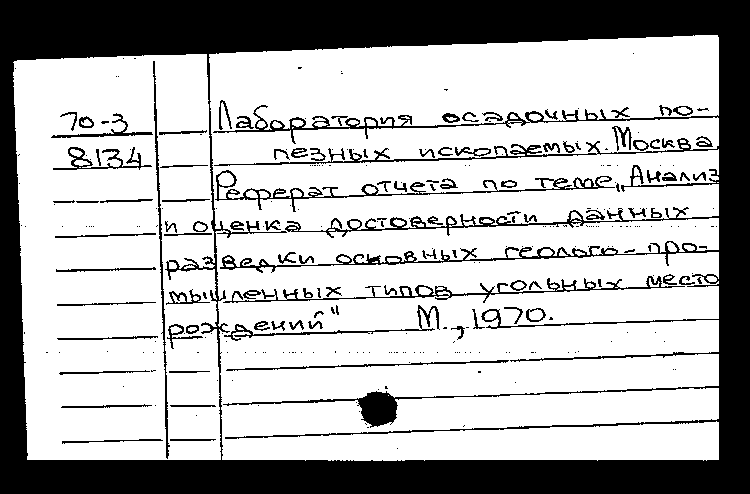 70-3 Лаборатория осадочных по-
8134 лезных ископаемых. Москва
Реферат отчета по теме „Анализ
и оценка достоверности данных
разведки основных геолого-про-
мышленных типов угольных место
рождений" М., 1970.